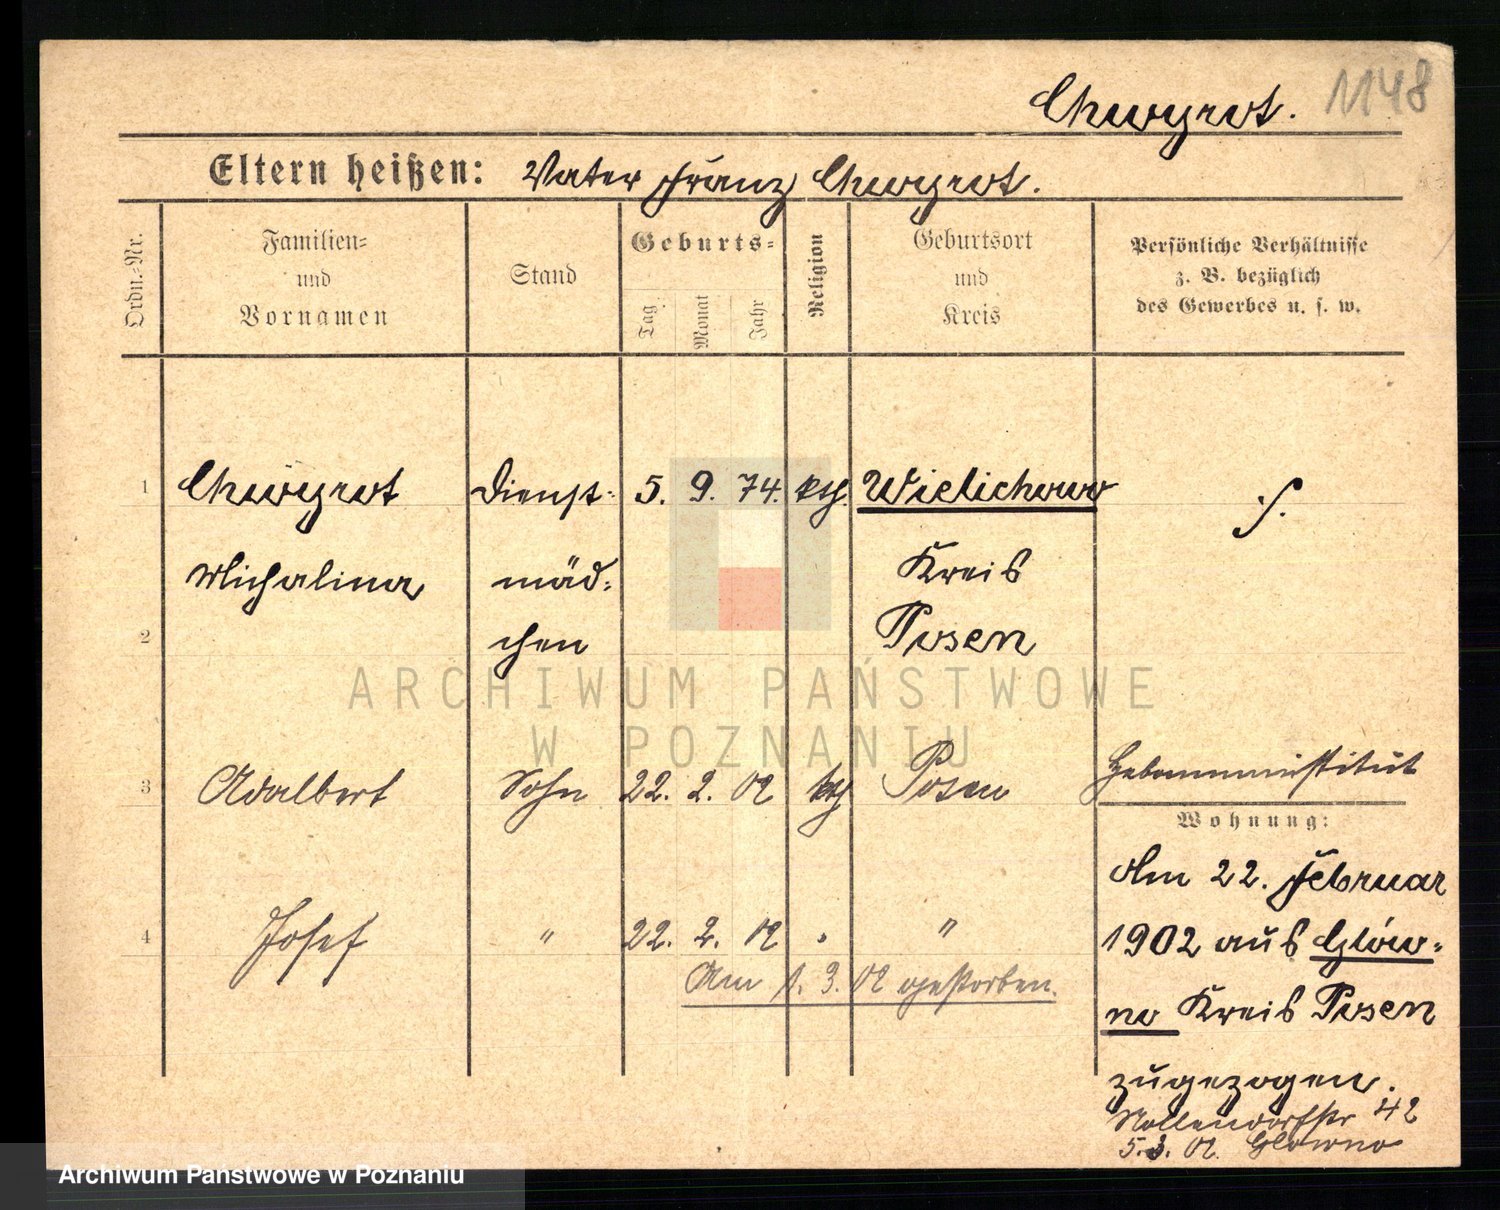 Chwyrot. 1148
Eltern heißen: Vater Franz Chwyrot.
Ordn.-Nr.
Familien-
und
Vornamen
Stand
Geburts-
Tag
Monat
Jahr
Religion
Geburtsort
und
Kreis
Persönliche Verhältnisse
z. B. bezüglich
des Gewerbes u. s. w.
1 Chwyrot Dienst- 5. 9. 74. kth. Wielichowo
Michalina mäd- Kreis
2 chen Posen
ARCHIWUM PAŃSTWOWE
W POZNANIU
Hebammeninstitut
3 Adalbert Sohn 22. 2. 02 kth Posen
Wohnung:
Am 22. Februar
4 Josef " 22. 2. 02 "
1902 aus Glow-
Am 1. 3. 02 gestorben.
no Kreis Posen
zugezogen.
Nollendorfstr 42
5.3. 02. Glowno
Archiwum Państwowe w Poznaniu